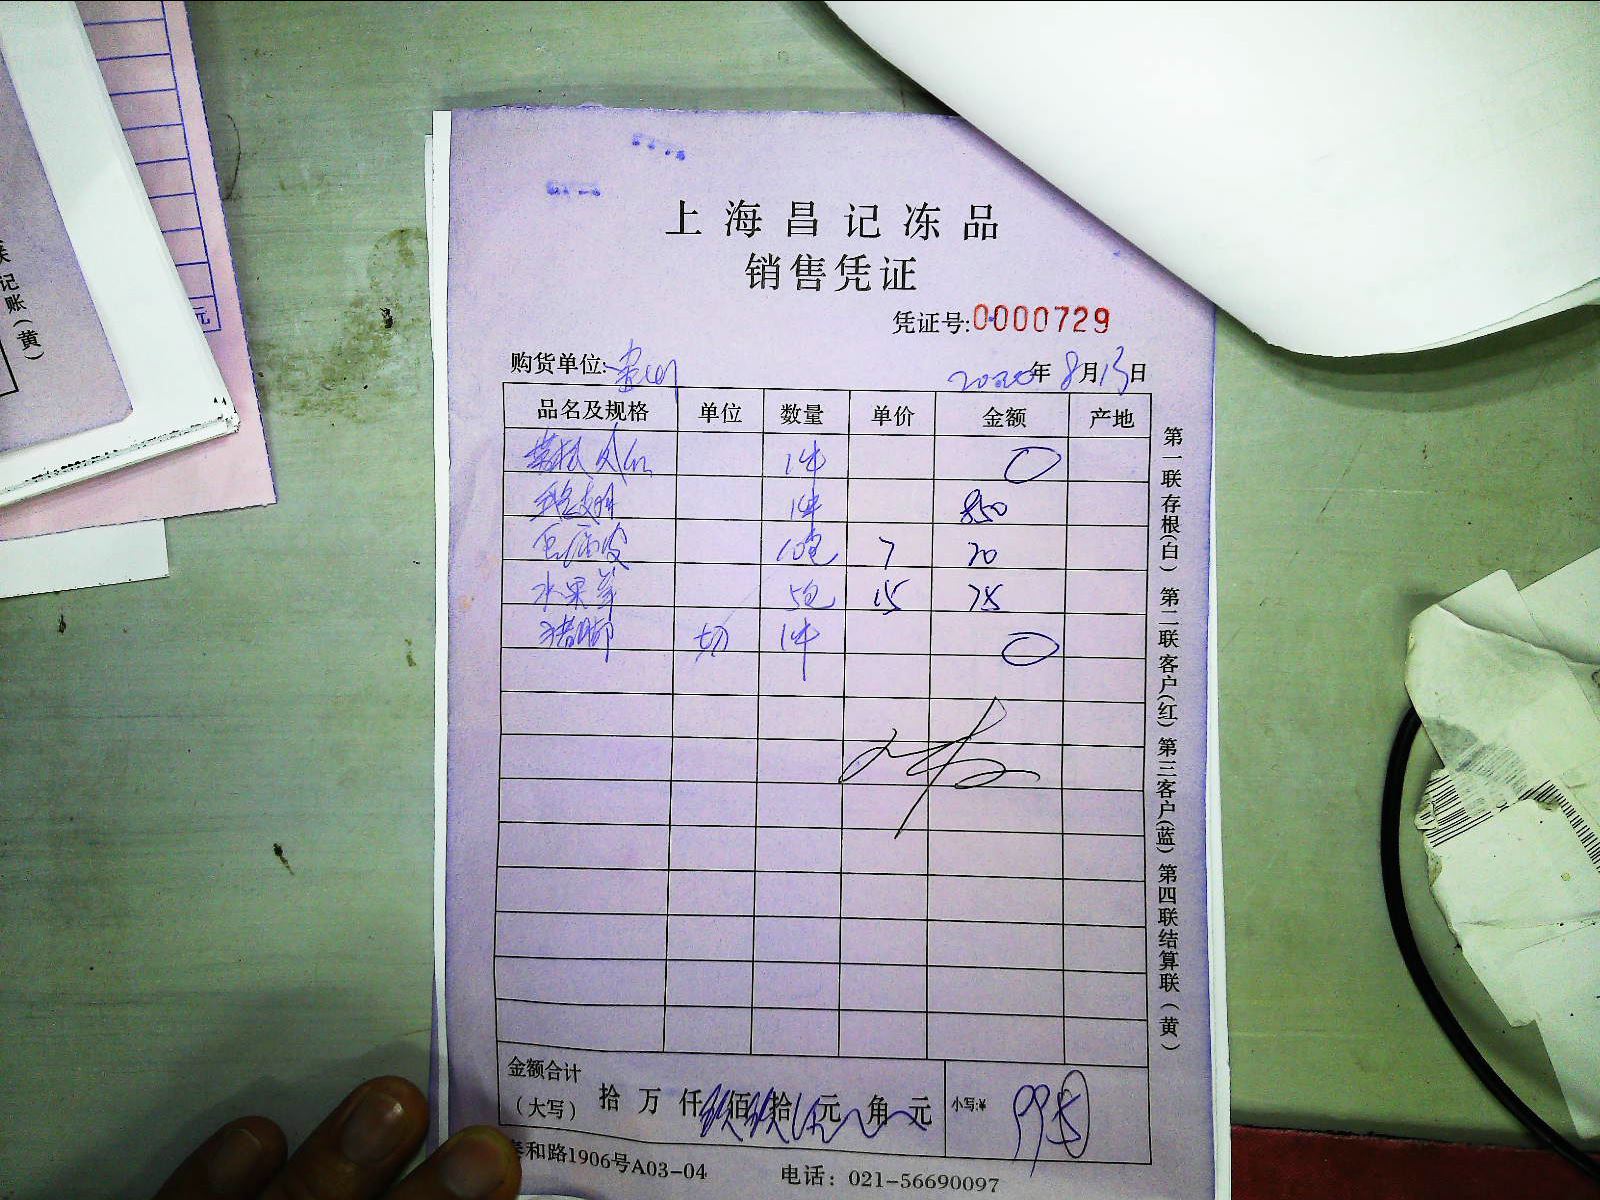 上海昌记冻品
销售凭证
凭证号:0000729
购货单位:
2020年8月13日
品名及规格 单位 数量 单价 金额 产地
1件 0
1件 850
10包 7 70
水果羊 5包 15 75
猪脚 切 1件 0
金额合计
(大写) 拾 万 仟玖佰玖拾伍元 角 元 小写:¥ 995
泰和路1906号A03-04 电话: 021-56690097
第一联存根(白) 第二联客户(红) 第三客户(蓝) 第四联结算联(黄)
联记账(黄)
元